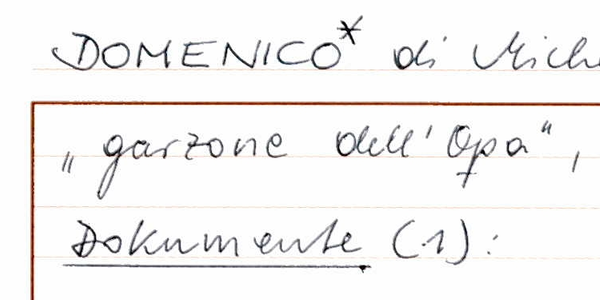 DOMENICO* di Miche
„garzone dell'Opa“,
Dokumente (1):